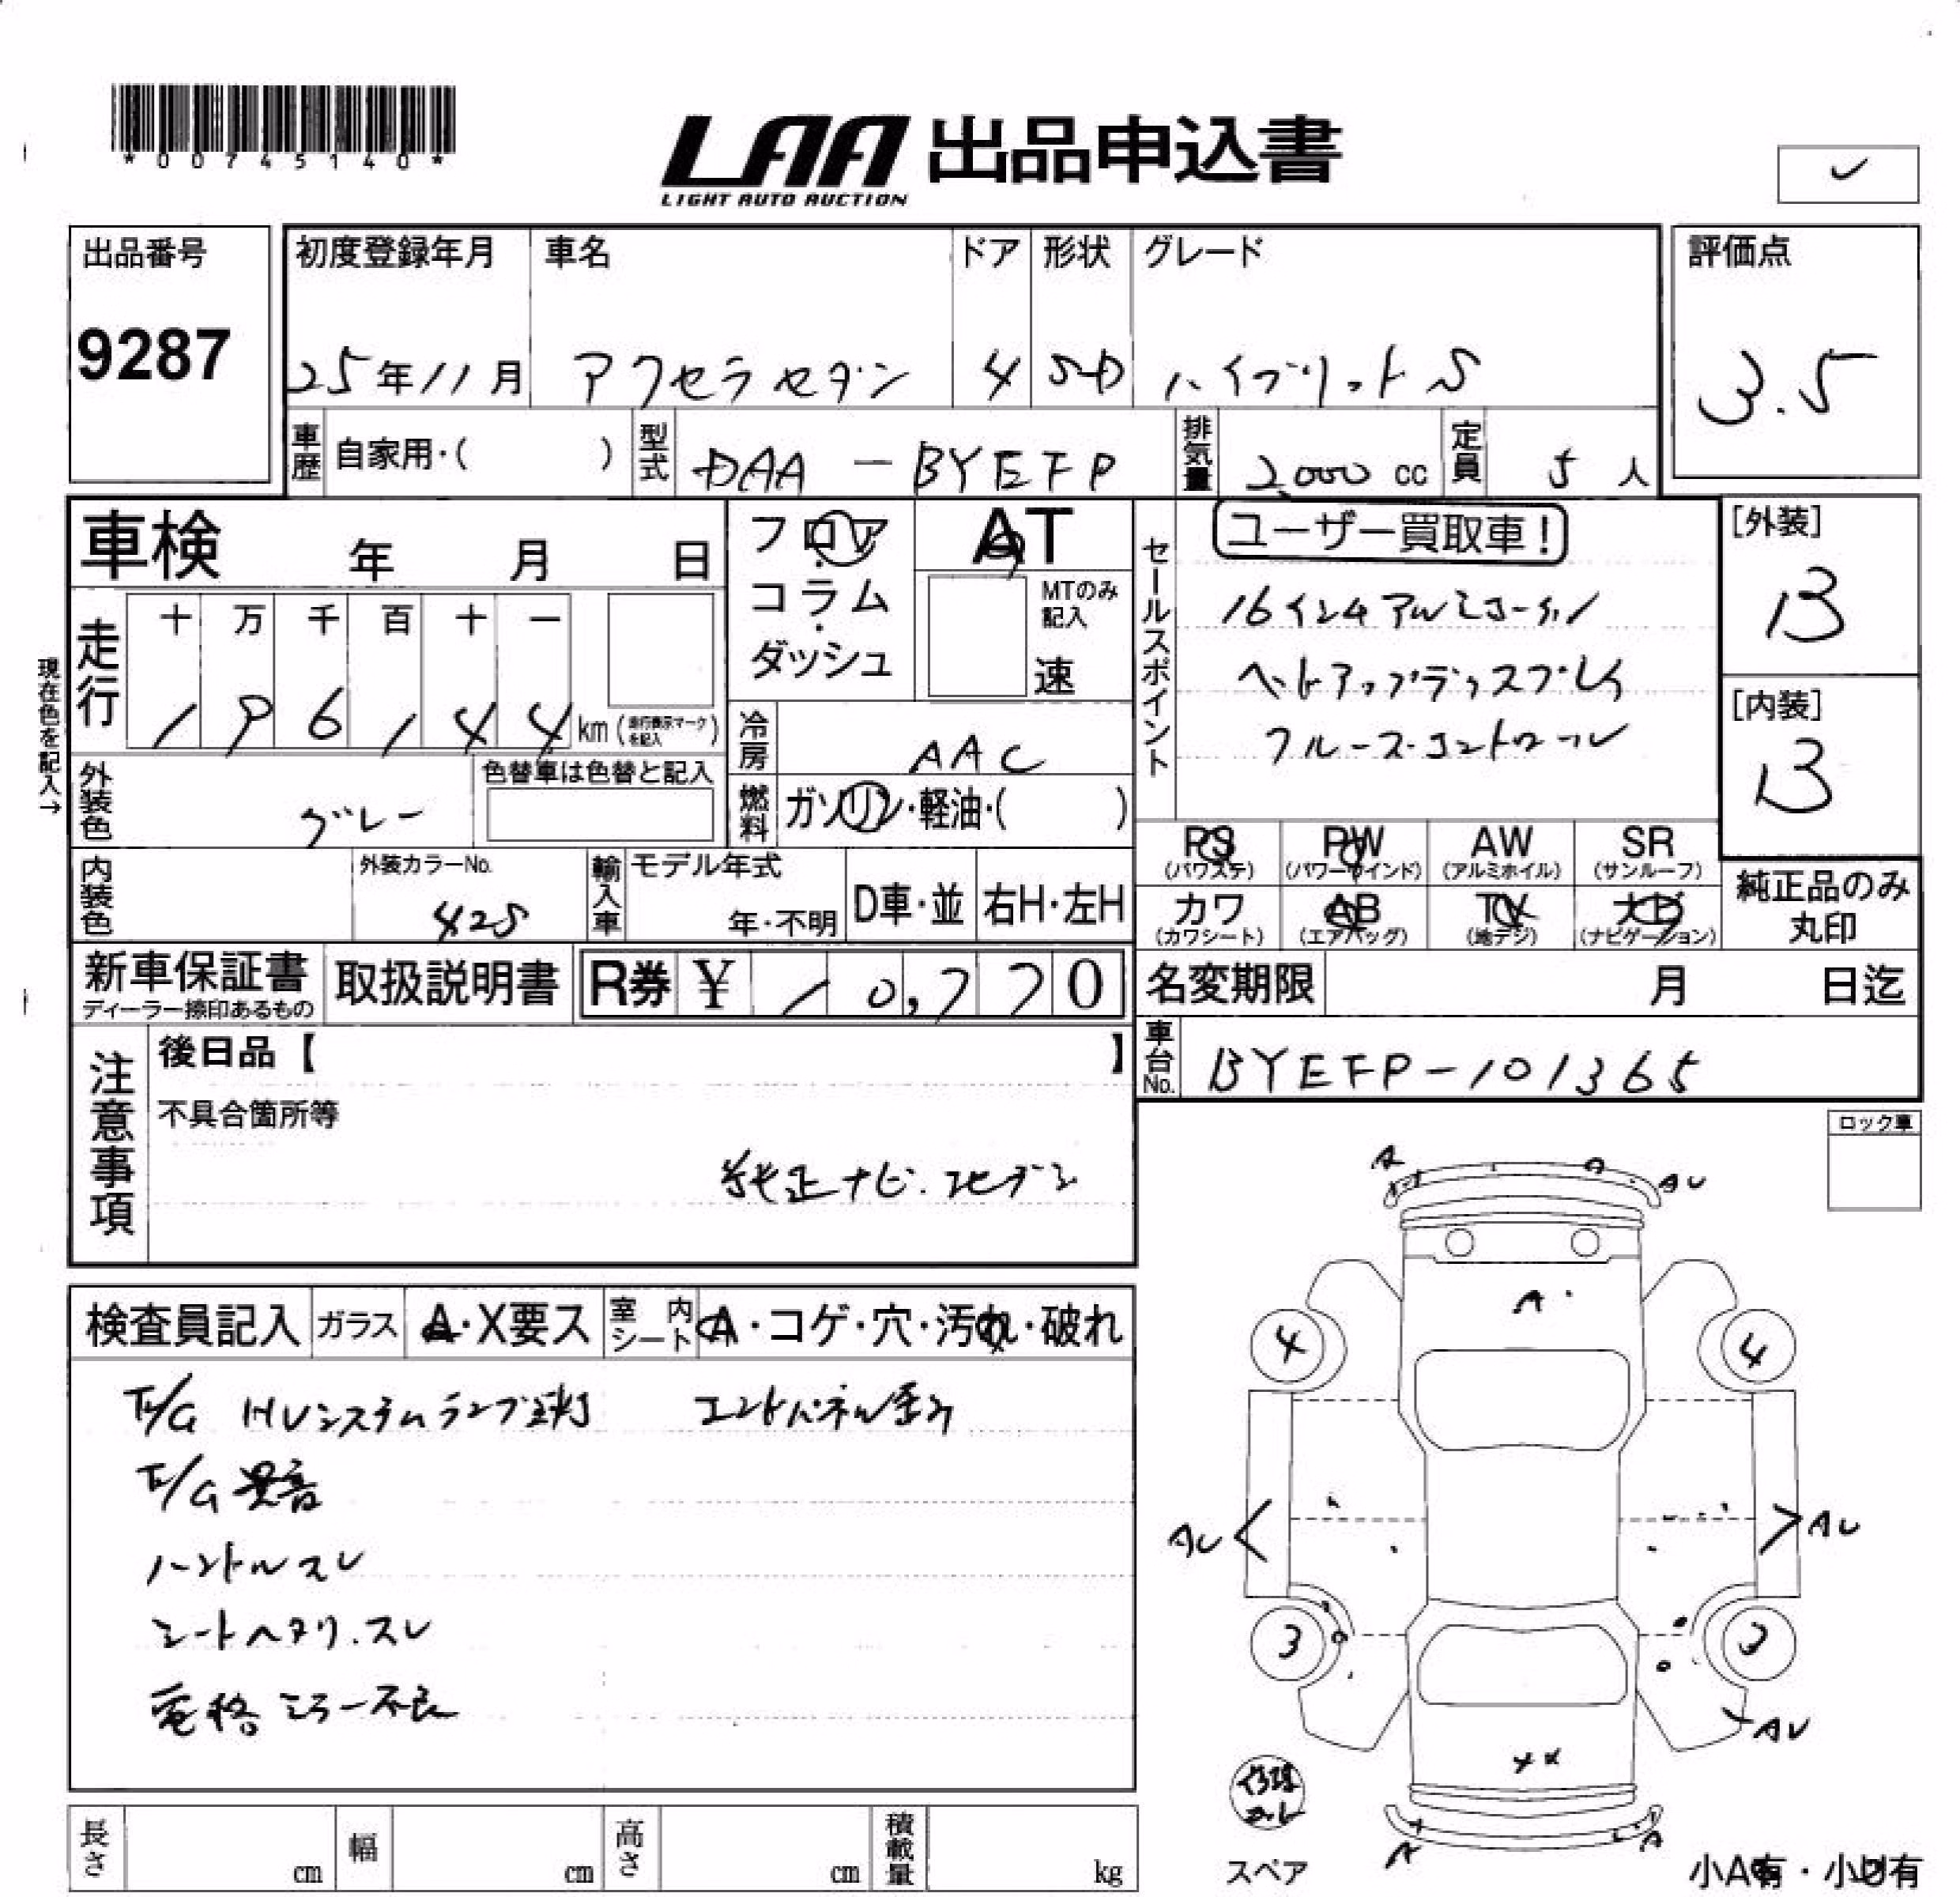 *00745140*
LAA 出品申込書
LIGHT AUTO AUCTION
出品番号
9287
初度登録年月 車名 ドア 形状 グレード
25年11月 アクセラセダン 4 SD ハイブリット S
評価点
3.5
車歴 自家用・( ) 型式 DAA-BYEFP 排気量 2,000 cc 定員 5人
車検 年 月 日
フロア
コラム
ダッシュ
AT
MTのみ
記入
速
現在色を記入→
走行
十 万 千 百 十 一
196144 km (走行表示マークを記入)
冷房 AAC
外装色 グレー
色替車は色替と記入
燃料 ガソリン・軽油・( )
セールスポイント
ユーザー買取車!
16インチアルミ
ヘットアップディスプレイ
クルーズコントロール
[外装]
B
[内装]
B
内装色
外装カラーNo.
42S
輸入車
モデル年式
年・不明
D車・並
右H・左H
PS
(パワステ)
PW
(パワーウインド)
AW
(アルミホイル)
SR
(サンルーフ)
カワ
(カワシート)
AB
(エアバッグ)
TV
(地デジ)
ナビ
(ナビゲーション)
純正品のみ
丸印
新車保証書
ディーラー捺印あるもの
取扱説明書
R券 ¥10,770
名変期限 月 日迄
車台No. BYEFP-101365
注意事項
後日品【 】
不具合箇所等
純正ナビ.
ロック車
検査員記入 ガラス A・X要ス 室内シート A・コゲ・穴・汚れ・破れ
E/G HVシステムランプ点灯 エンドパネル歪み
E/G 異音
ハンドルスレ
シートヘタリ.スレ
電格ミラー不良
A
AU
A
4
4
AU
AU
3
3
AU
XX
修理
キット
A
A
スペア
小A有・小U有
長さ cm 幅 cm 高さ cm 積載量 kg